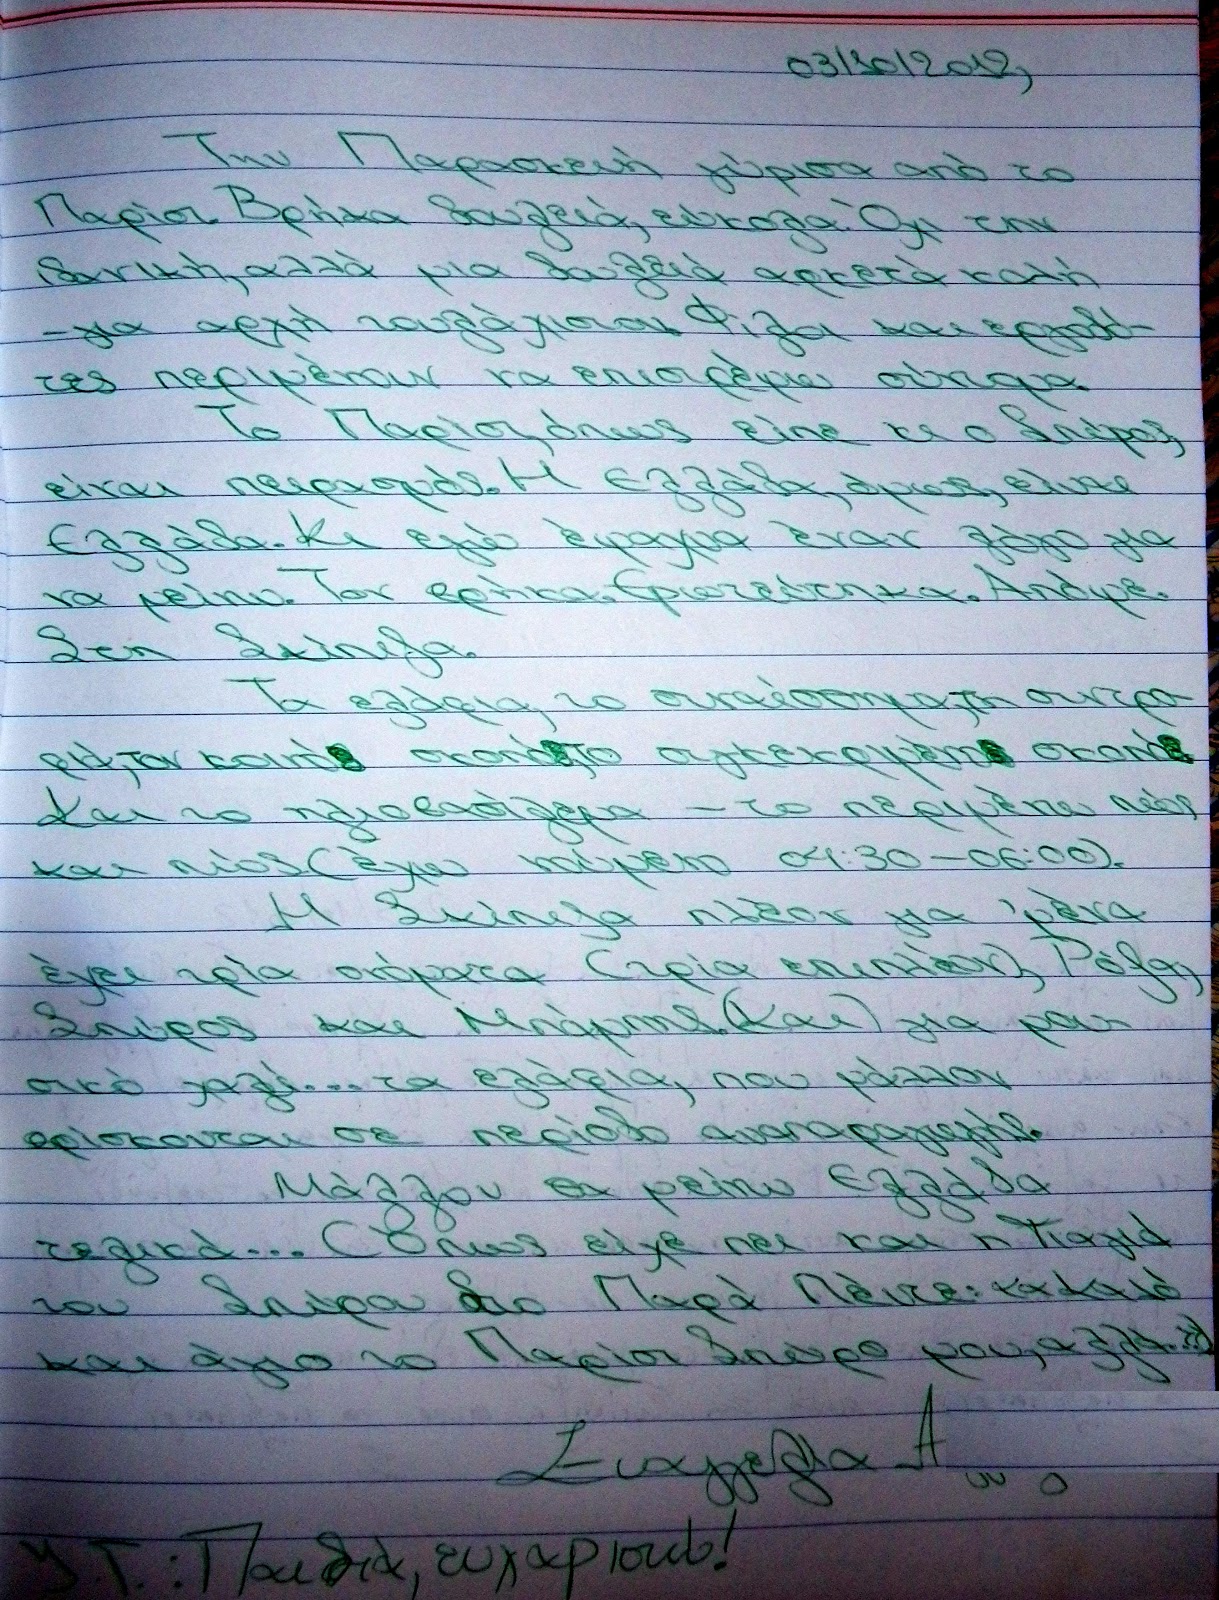 03/10/2012,
Την Παρασκευή γύρισα από το
Παρίσι. Βρήκα δουλειά, εύκολα. Όχι την
ιδανική, αλλά μια δουλειά αρκετά καλή
- για αρχή τουλάχιστον. Φίλοι και εργοδό-
τες περιμένουν να επιστρέψω σύντομα.
Το Παρίσι, όπως είπε κι ο Σπύρος,
είναι πειρασμός. Η Ελλάδα, όμως, είναι
Ελλάδα. Κι εγώ έψαχνα έναν λόγο για
να μείνω. Τον βρήκα. Ερωτεύτηκα. Απόψε.
Στη Σκίπεζα.
Τα ελάφια, το συναίσθημα, τη συντρο-
φιά, τον κοινό σκοπό, το συγκεκριμένο σκοπό
Και το ηλιοβασίλεμα - το περιμένω πώς
και πώς (έχω πυρετό 04:30-06:00).
Η Σκίπεζα πλέον για 'μένα
έχει τρία ονόματα (τρία επιπλέον),
Σπύρος και Μπάμπης. (Και) για μου-
σικό χαλί... τα ελάφια, που μάλλον
βρίσκονται σε περίοδο αναπαραγωγής.
Μάλλον θα μείνω Ελλάδα
τελικά... (Όπως είχε πει και η γιαγιά
του Σπύρου στο Παρά Πέντε: καλό
και άγιο το Παρίσι Σπύρο μου, αλλά..!)
Ευαγγελία Α...
Υ.Γ.: Παιδιά, ευχαριστώ!